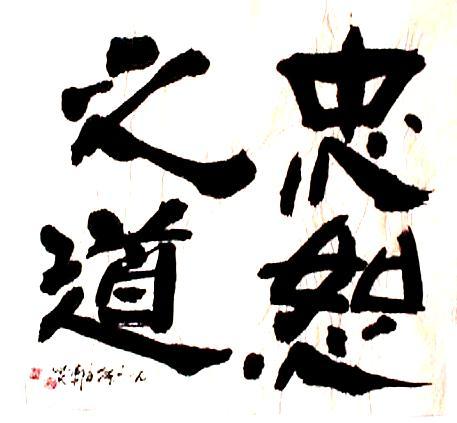 忠恕
之道